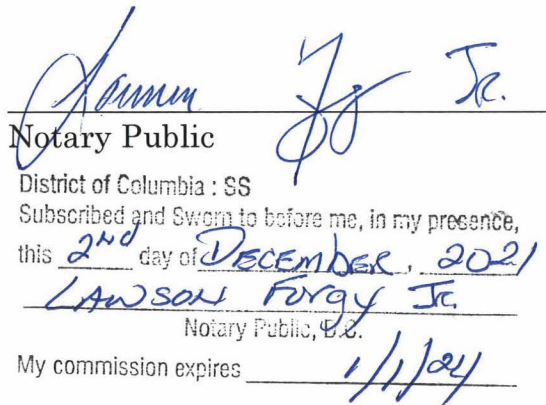 Jr.
Notary Public
District of Columbia : SS
Subscribed and Sworn to before me, in my presence,
this 2nd day of DECEMBER, 2021
LAWSON Forgy Jr.
Notary Public, D.C.
My commission expires 1/1/24